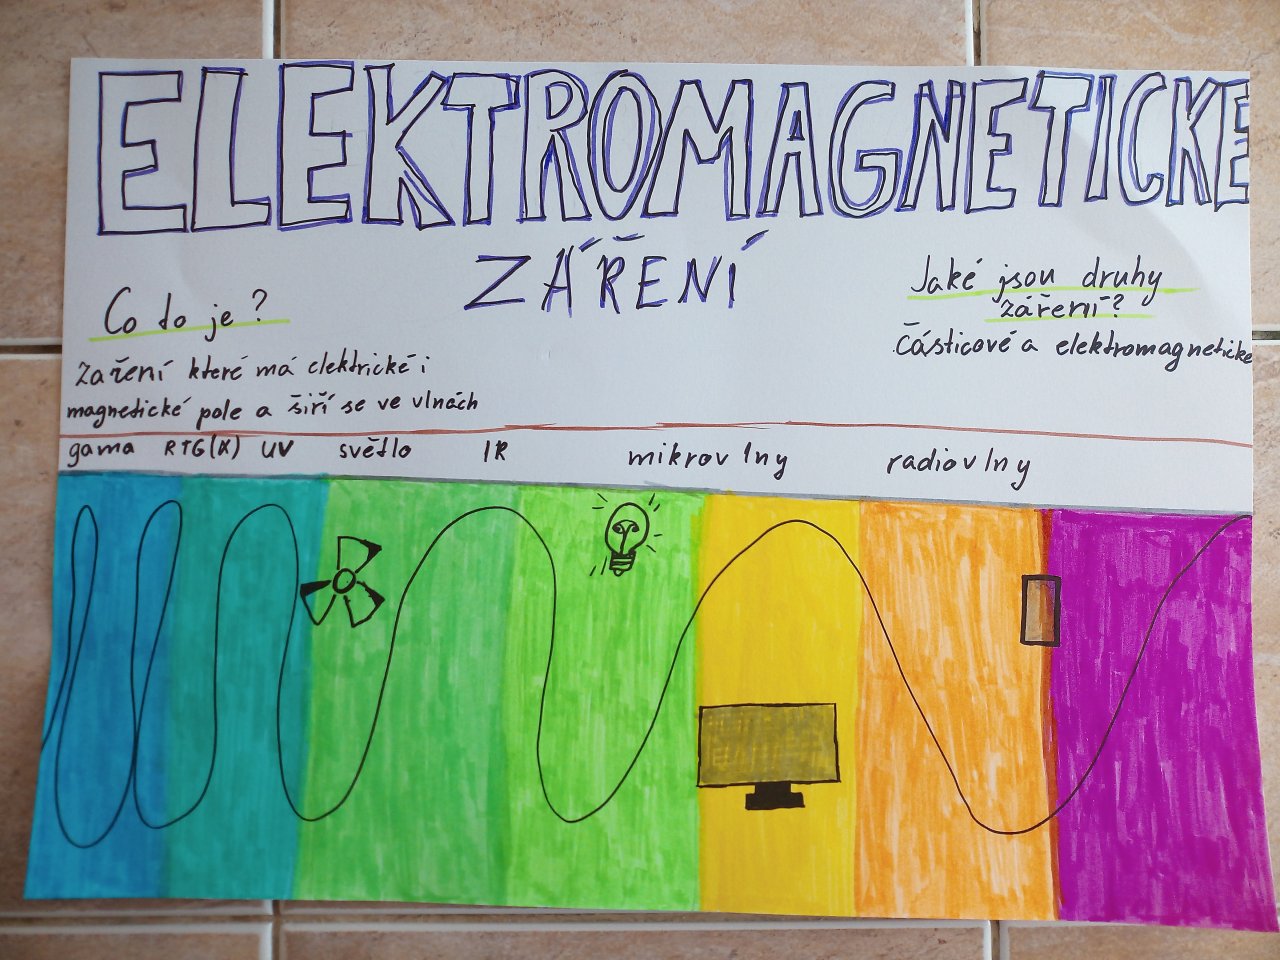 ELEKTROMAGNETICKE
ZÁŘENÍ
Co to je?
Zaření které má elektrické i
magnetické pole a šiří se ve vlnách
Jaké jsou druhy
záření?
částicové a elektromagnetické
gama RTG(X) UV světlo IR mikrovlny radiovlny